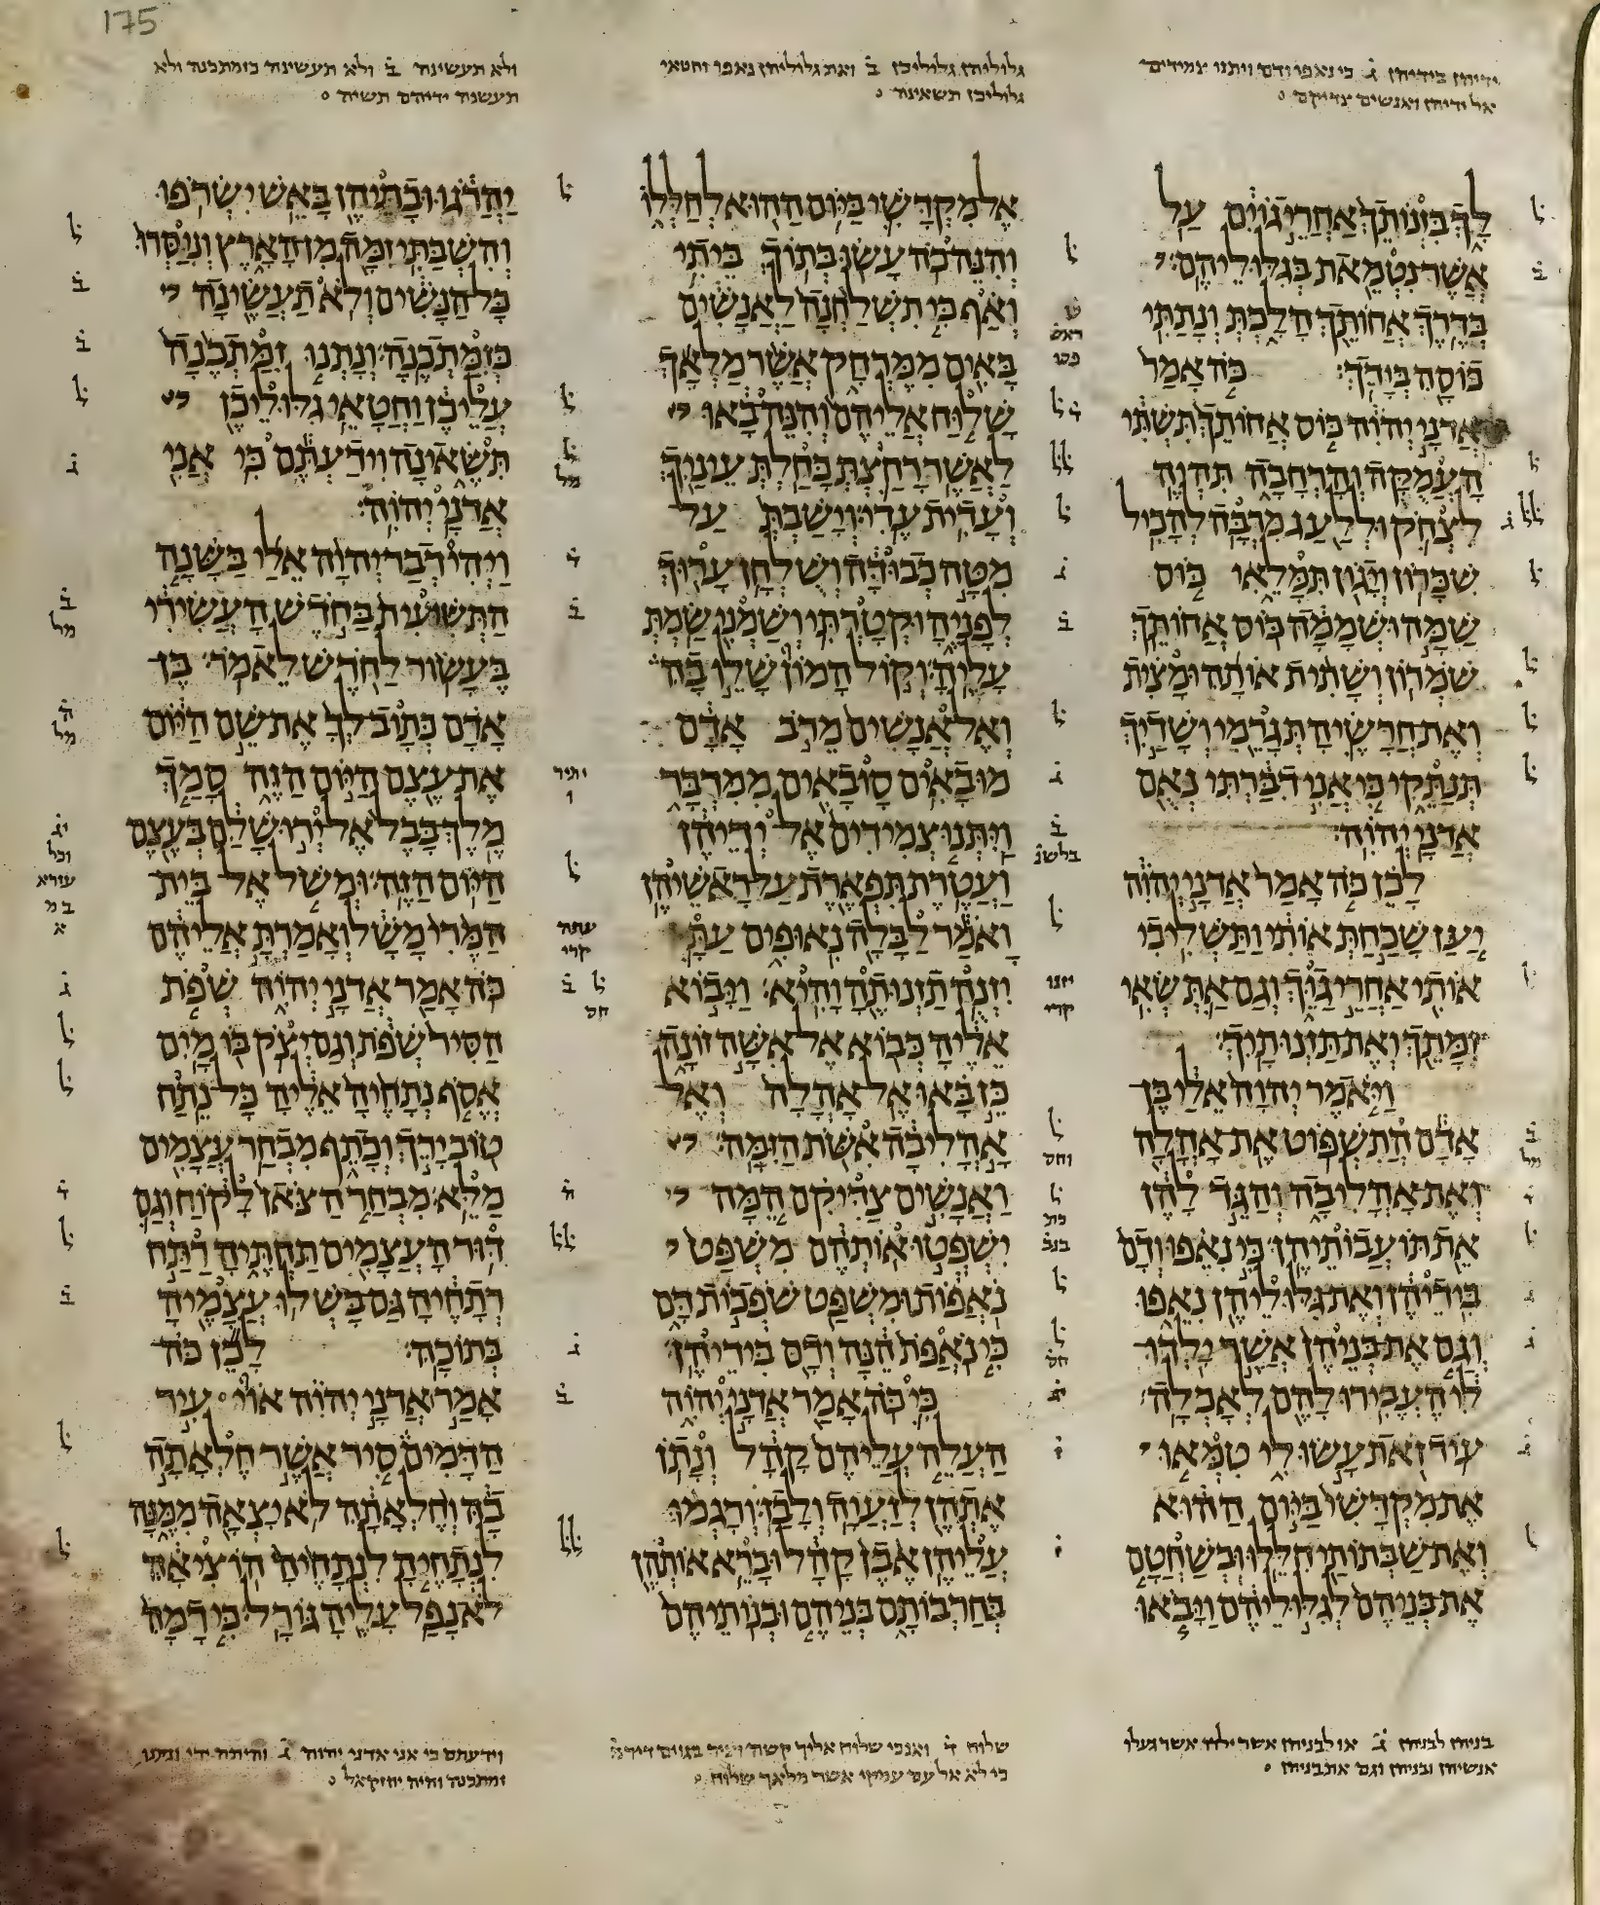 175
ידיהן בידיהן ג כי נאפו ודם ויתנו צמידים
אל ידיהן ואנשים צדיקם
גלוליהן גלוליכן ב ואת גלוליהן נאפו וחטאי
גלוליכן תשאינה
ולא תעשינה ב ולא תעשינה כזמתכנה ולא
תעשנה ידיהם תשיה
לך בזנותך אחרי גוים על
אשר נטמאת בגלוליהם
בדרך אחותך הלכת ונתתי
כוסה בידך כה אמר
אדני יהוה כוס אחותך תשתי
העמקה והרחבה תהיה
לצחק וללעג מרבה להכיל
שכרון ויגון תמלאי כוס
שמה ושממה כוס אחותך
שמרון ושתית אותה ומצית
ואת חרשיה תגרמי ושדיך
תנתקי כי אני דברתי נאם
אדני יהוה
לכן כה אמר אדני יהוה
יען שכחת אותי ותשליכי
אותי אחרי גוך וגם את שאי
זמתך ואת תזנותיך
ויאמר יהוה אלי בן
אדם התשפוט את אהלה
ואת אהליבה והגד להן
את תועבותיהן כי נאפו ודם
בידיהן ואת גלוליהן נאפו
וגם את בניהן אשר ילדו
לי העבירו להם לאכלה
עוד זאת עשו לי טמאו
את מקדשי ביום ההוא
ואת שבתותי חללו ובשחטם
את בניהם לגלוליהם ויבאו
אל מקדשי ביום ההוא לחללו
והנה כה עשו בתוך ביתי
ואף כי תשלחנה לאנשים
באים ממרחק אשר מלאך
שלוח אליהם והנה באו
לאשר רחצת כחלת עיניך
ועדית עדי וישבת על
מטה כבודה ושלחן ערוך
לפניה וקטרתי ושמני שמת
עליה וקול המון שלו בה
ואל אנשים מרב אדם
מובאים סובאים ממדבר
ויתנו צמידים אל ידיהן
ועטרת תפארת על ראשיהן
ואמר לבלה נאופים עת
יזנה תזנותה והיא ויבוא
אליה כבוא אל אשה זונה
כן באו אל אהלה ואל
אהליבה אשת הזמה
ואנשים צדיקם המה
ישפטו אותהם משפט
נאפות ומשפט שפכות דם
כי נאפת הנה ודם בידיהן
כי כה אמר אדני יהוה
העלה עליהם קהל ונתן
אתהן לזעוה ולבז ורגמו
עליהן אבן קהל וברא אותהן
בחרבותם בניהם ובנותיהם
יהרגו ובתיהן באש ישרפו
והשבתי זמה מן הארץ ונוסרו
כל הנשים ולא תעשינה
כזמתכנה ונתנו זמתכנה
עליכן וחטאי גלוליכן
תשאינה וידעתם כי אני
אדני יהוה
ויהי דבר יהוה אלי בשנה
התשיעית בחדש העשירי
בעשור לחדש לאמר בן
אדם כתוב לך את שם היום
את עצם היום הזה סמך
מלך בבל אל ירושלם בעצם
היום הזה ומשל אל בית
המרי משל ואמרת אליהם
כה אמר אדני יהוה שפת
הסיר שפת וגם יצק בו מים
אסף נתחיה אליה כל נתח
טוב ירך וכתף מבחר עצמים
מלא מבחר הצאן לקוח וגם
דור העצמים תחתיה רתח
רתחיה גם בשלו עצמיה
בתוכה לכן כה
אמר אדני יהוה אוי עיר
הדמים סיר אשר חלאתה
בה וחלאתה לא יצאה ממנה
לנתחיה לנתחיה הוציאה
לא נפל עליה גורל כי דמה
בניהן לבניהן ב או לבניהן אשר ילדו אשר געלו
אנשיהן ובניהן וגם את בניהן
שלוח ד ואנכי שלוח אליך קשה
כי לא אל עם עמקי אשר מלאך שלוח
וידעתם כי אני אדני יהוה ג
זמתכנה והיה יחזקאל